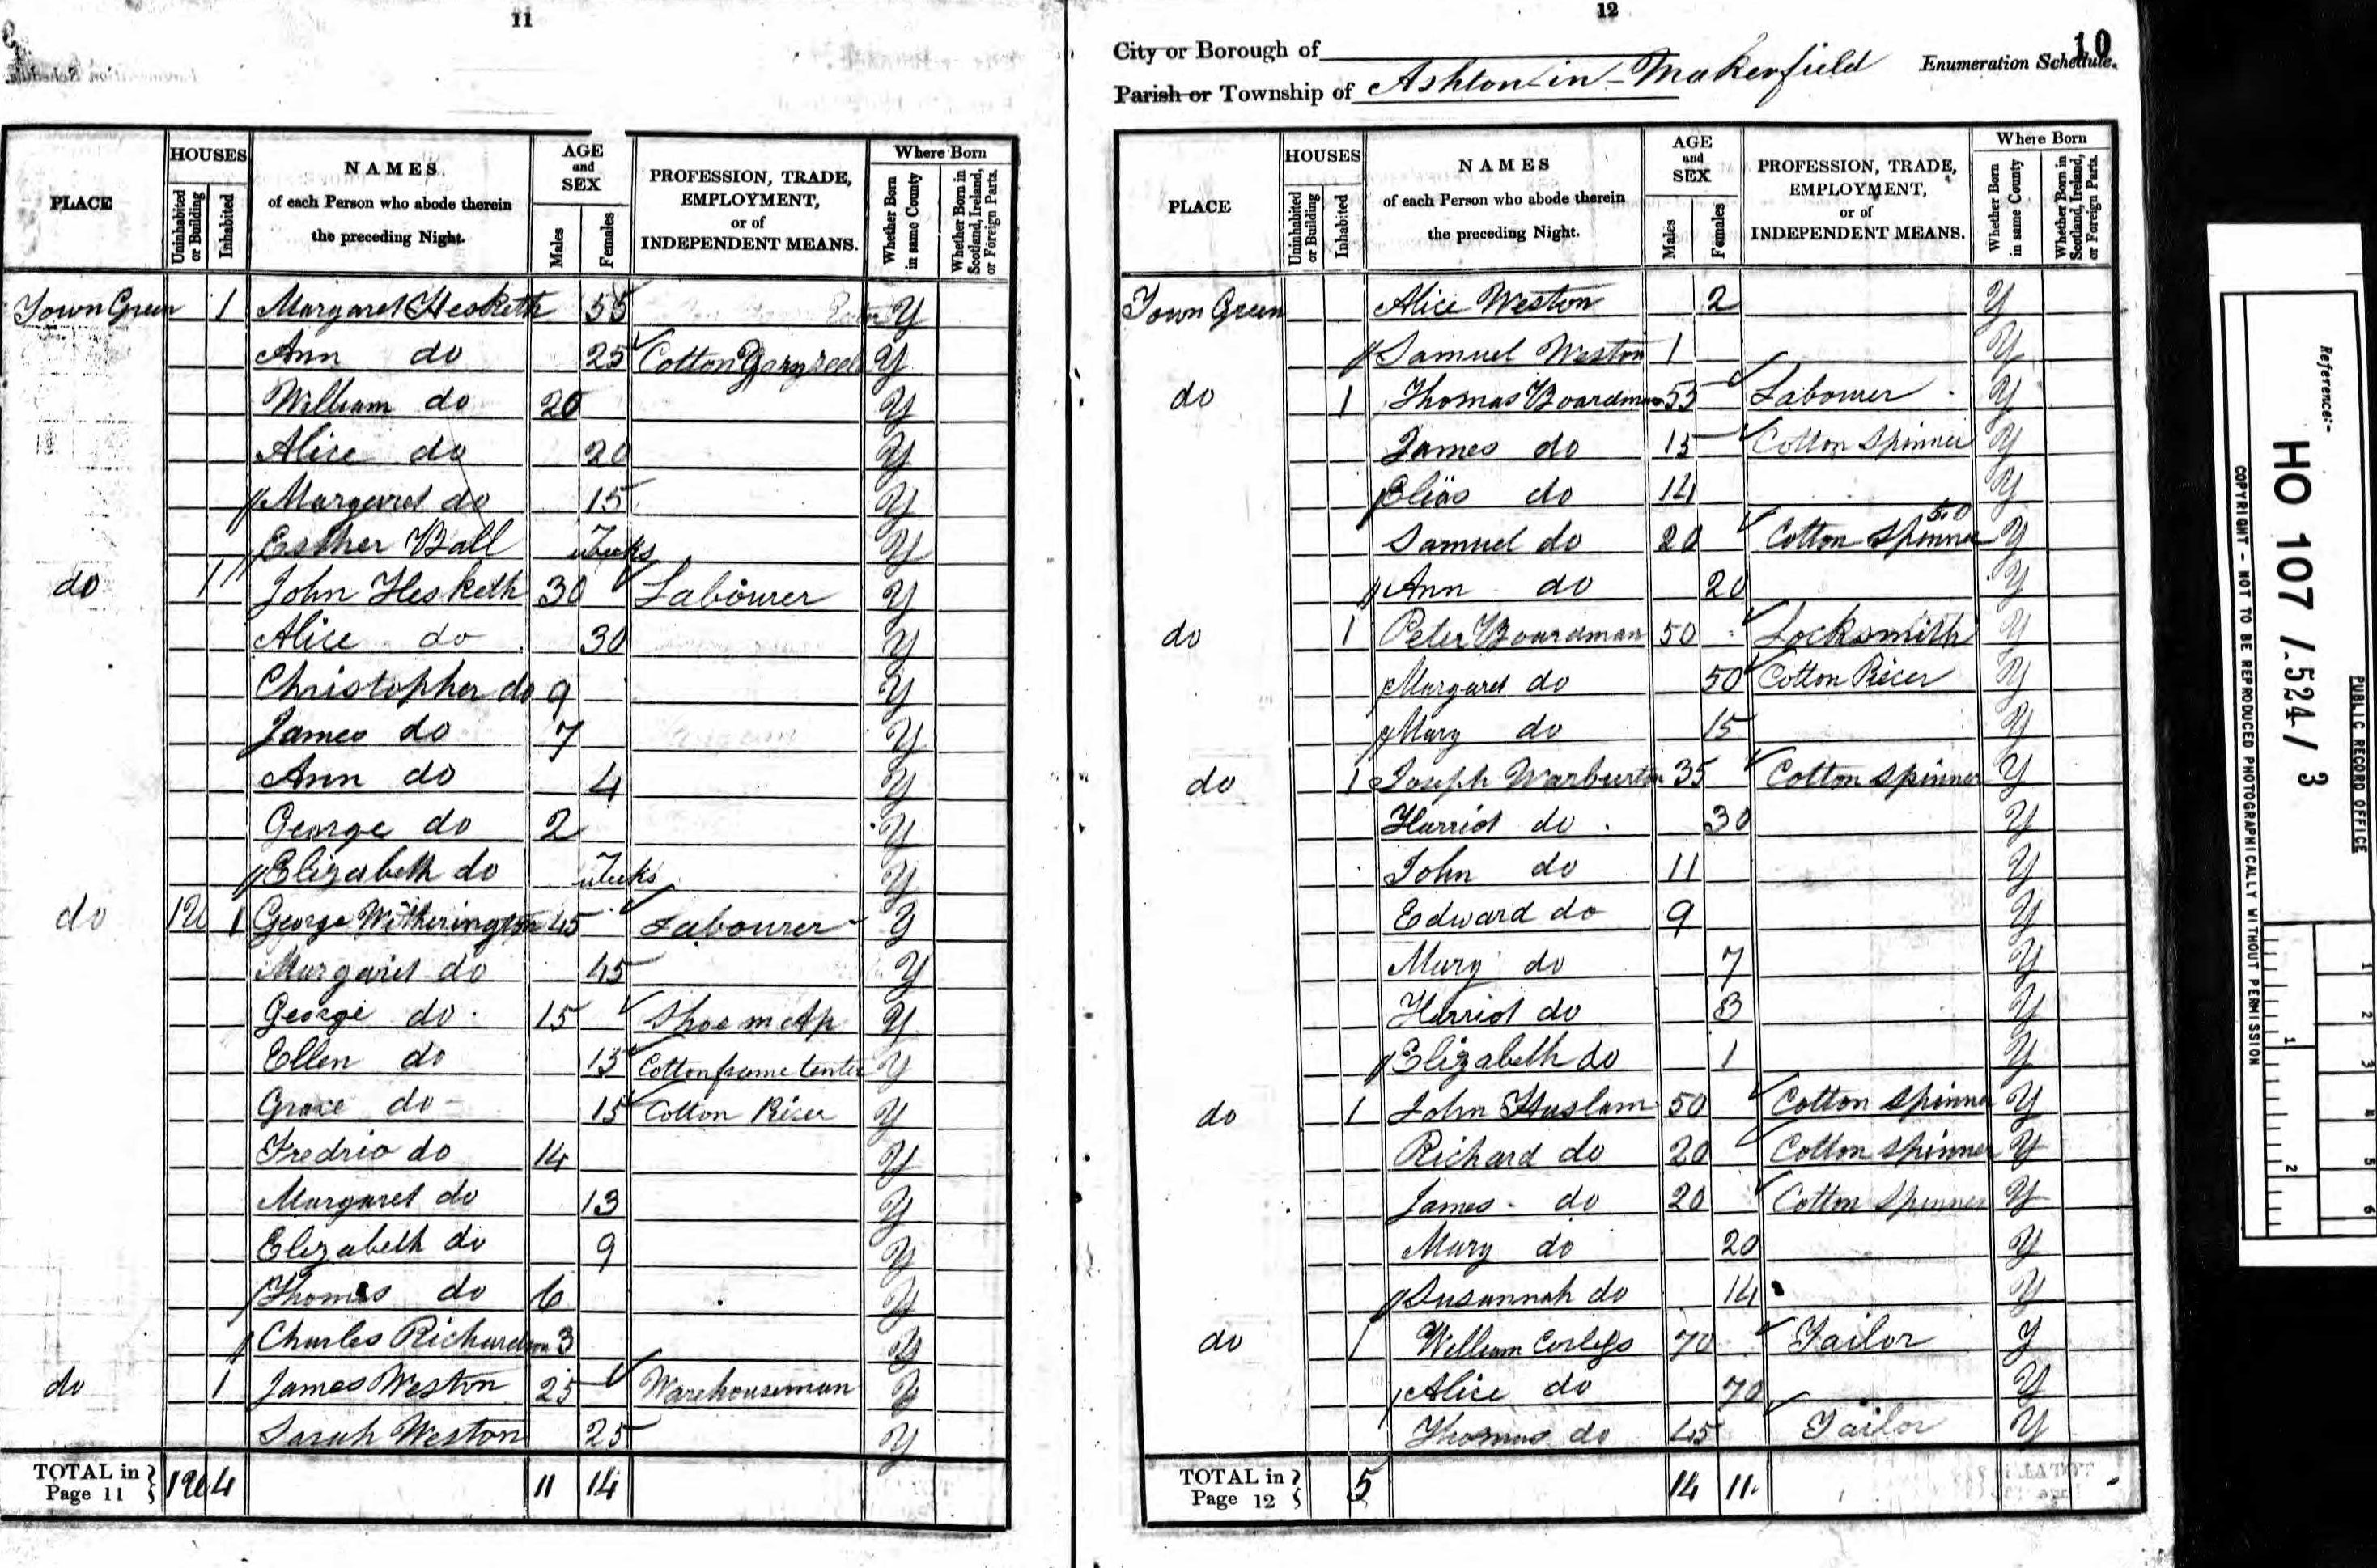 11
PLACE
HOUSES
Uninhabited or Building
Inhabited
NAMES
of each Person who abode therein
the preceding Night.
AGE
and
SEX
Males
Females
PROFESSION, TRADE,
EMPLOYMENT,
or of
INDEPENDENT MEANS.
Where Born
Whether Born in same County
Whether Born in Scotland, Ireland, or Foreign Parts.
Town Green 1 Margaret Hesketh 55 Y
Ann do 25 Cotton Y
William do 20 Y
Alice do 20 Y
Margaret do 15 Y
Esther Ball Weeks Y
do 1 John Hesketh 30 Labourer Y
Alice do 30 Y
Christopher do 9 Y
James do 7 Y
Ann do 4 Y
George do 2 Y
Elizabeth do Weeks Y
do 1 George Witherington 45 Labourer Y
Margaret do 45 Y
George do 15 Shoe m Ap Y
Ellen do 15 Cotton frame tenter Y
Grace do 15 Cotton Picer Y
Fredric do 14 Y
Margaret do 13 Y
Elizabeth do 9 Y
Thomas do 6 Y
Charles Richardson 3 Y
do 1 James Weston 25 Warehouseman Y
Sarah Weston 25 Y
TOTAL in Page 11 4 11 14
12
City or Borough of
10
Parish or Township of Ashton-in-Makerfield
Enumeration Schedule.
PLACE
HOUSES
Uninhabited or Building
Inhabited
NAMES
of each Person who abode therein
the preceding Night.
AGE
and
SEX
Males
Females
PROFESSION, TRADE,
EMPLOYMENT,
or of
INDEPENDENT MEANS.
Where Born
Whether Born in same County
Whether Born in Scotland, Ireland, or Foreign Parts.
Town Green Alice Weston 2 Y
Samuel Weston 1 Y
do 1 Thomas Boardman 55 Labourer Y
James do 15 Cotton Spinner Y
Elias do 14 Y
Samuel do 20 Cotton Spinner Y
Ann do 20 Y
do 1 Peter Boardman 50 Locksmith Y
Margaret do 50 Cotton Picer Y
Mary do 15 Y
do 1 Joseph Warburton 35 Cotton Spinner Y
Harriot do 30 Y
John do 11 Y
Edward do 9 Y
Mary do 7 Y
Harriot do 3 Y
Elizabeth do 1 Y
do 1 John Haslam 50 Cotton Spinner Y
Richard do 20 Cotton Spinner Y
James do 20 Cotton Spinner Y
Mary do 20 Y
Susannah do 14 Y
do 1 William 70 Tailor Y
Alice do 70 Y
Thomas do 45 Tailor Y
TOTAL in Page 12 5 14 11
Reference:-
HO 107 / 524 / 3
PUBLIC RECORD OFFICE
COPYRIGHT - NOT TO BE REPRODUCED PHOTOGRAPHICALLY WITHOUT PERMISSION
1
2
1
2
3
4
5
6